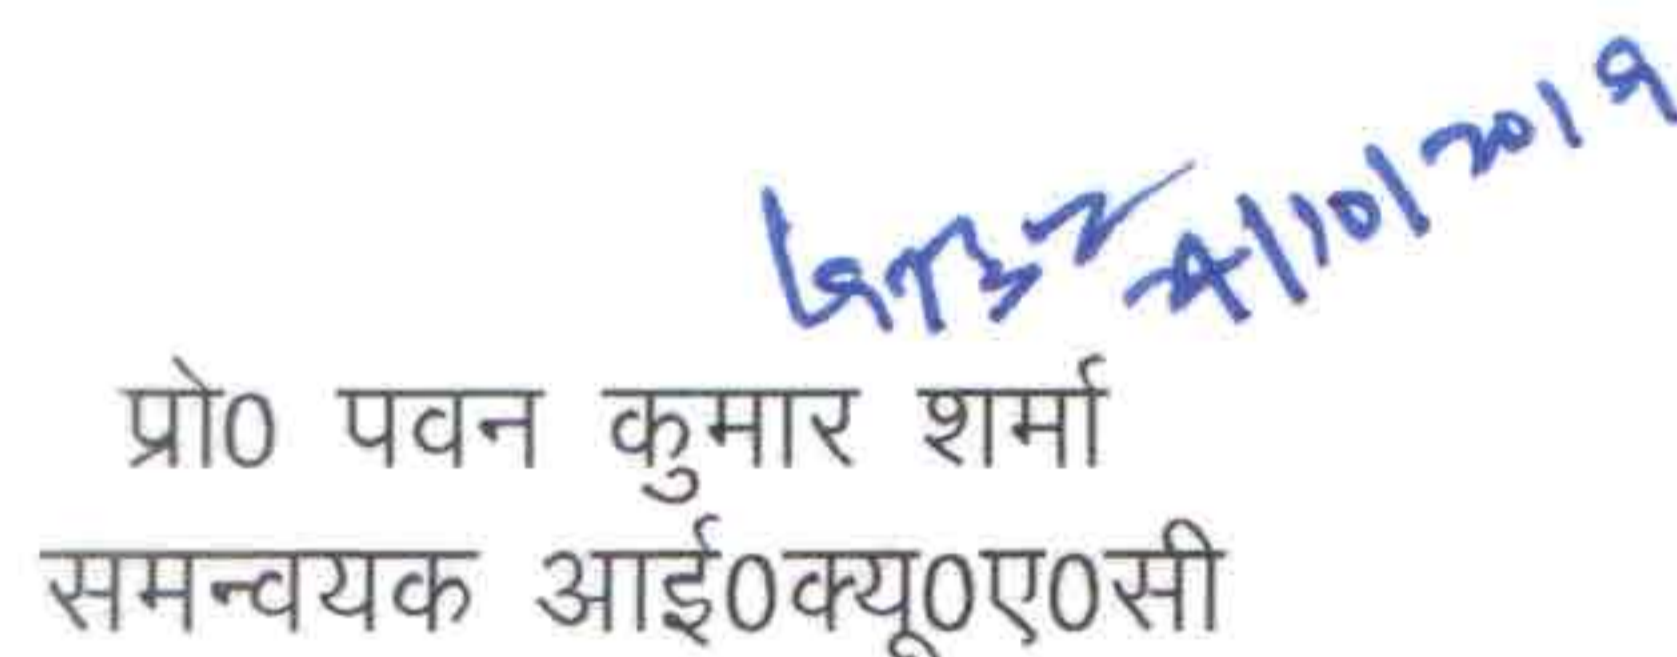 4/10/2019
प्रो0 पवन कुमार शर्मा
समन्वयक आई0क्यू0ए0सी